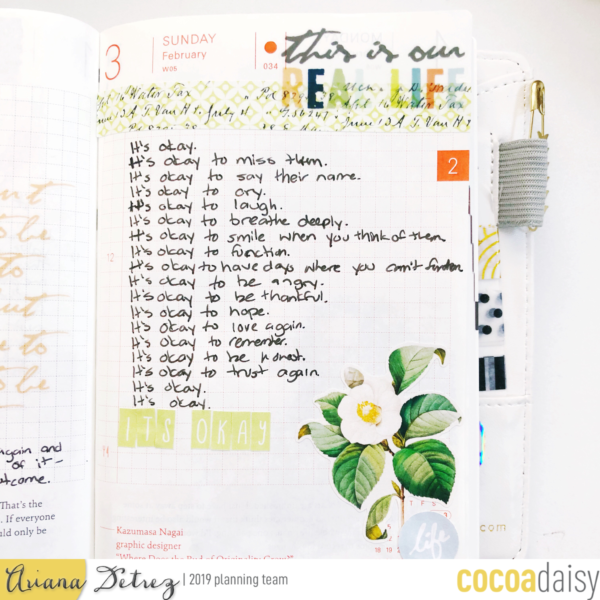 3
SUNDAY
February
w05
034
this is our
REAL LIFE
It's okay.
It's okay to miss them.
It's okay to say their name.
It's okay to cry.
It's okay to laugh.
It's okay to breathe deeply.
It's okay to smile when you think of them
It's okay to function.
It's okay to have days where you can't function
It's okay to be angry.
It's okay to be thankful.
It's okay to hope.
It's okay to love again.
It's okay to remember.
It's okay to be honest.
It's okay to trust again
It's okay.
It's okay.
ITS OKAY
2
12
14
again and
of it-
That's the
. If everyone
uld only be
Kazumasa Nagai
graphic designer
life
.com
Ariana Detrez | 2019 planning team
cocoadaisy